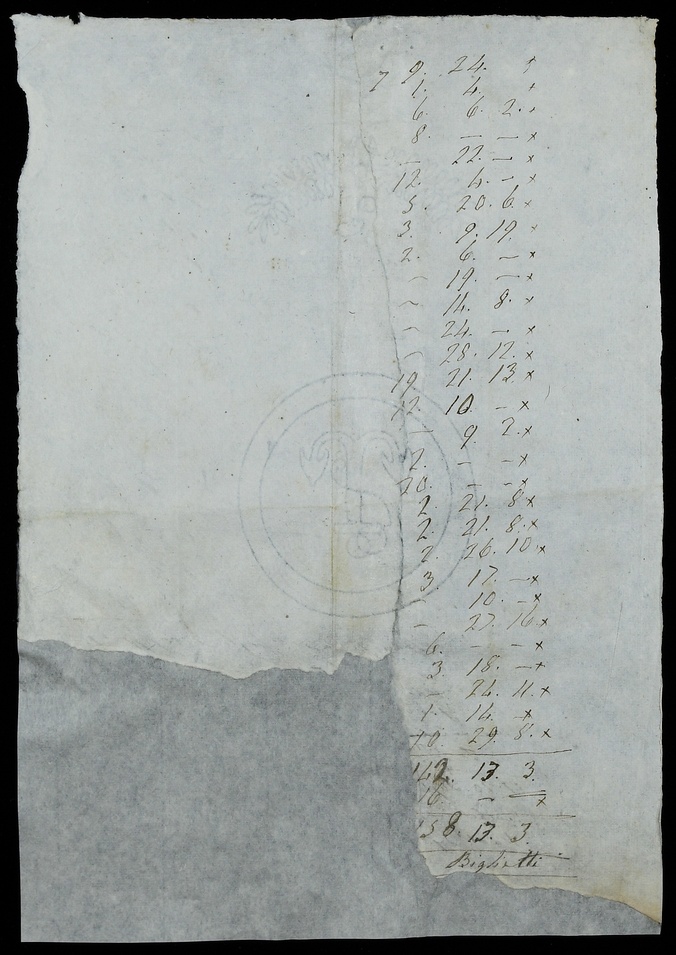 7 9. 24. +
1. 4. +
6. 6. 2. +
8. — — x
— 22. — x
12. 4. — x
5. 20. 6. x
3. 9. 19. x
2. 6. — x
— 19. — x
— 14. 8. x
— 24. — x
— 28. 12. x
19. 21. 13. x
12. 10. — x
— 9. 2. x
2. — — x
20. — — x
2. 21. 8. x
2. 21. 8. x
2. 26. 10. x
3. 17. — x
— 10. — x
— 27. 16. x
6. — — x
3. 18. — x
— 24. 11. x
1. 14. — x
10. 29. 8. x
142. 13. 3.
16. — — x
158. 13. 3.
Biglietti